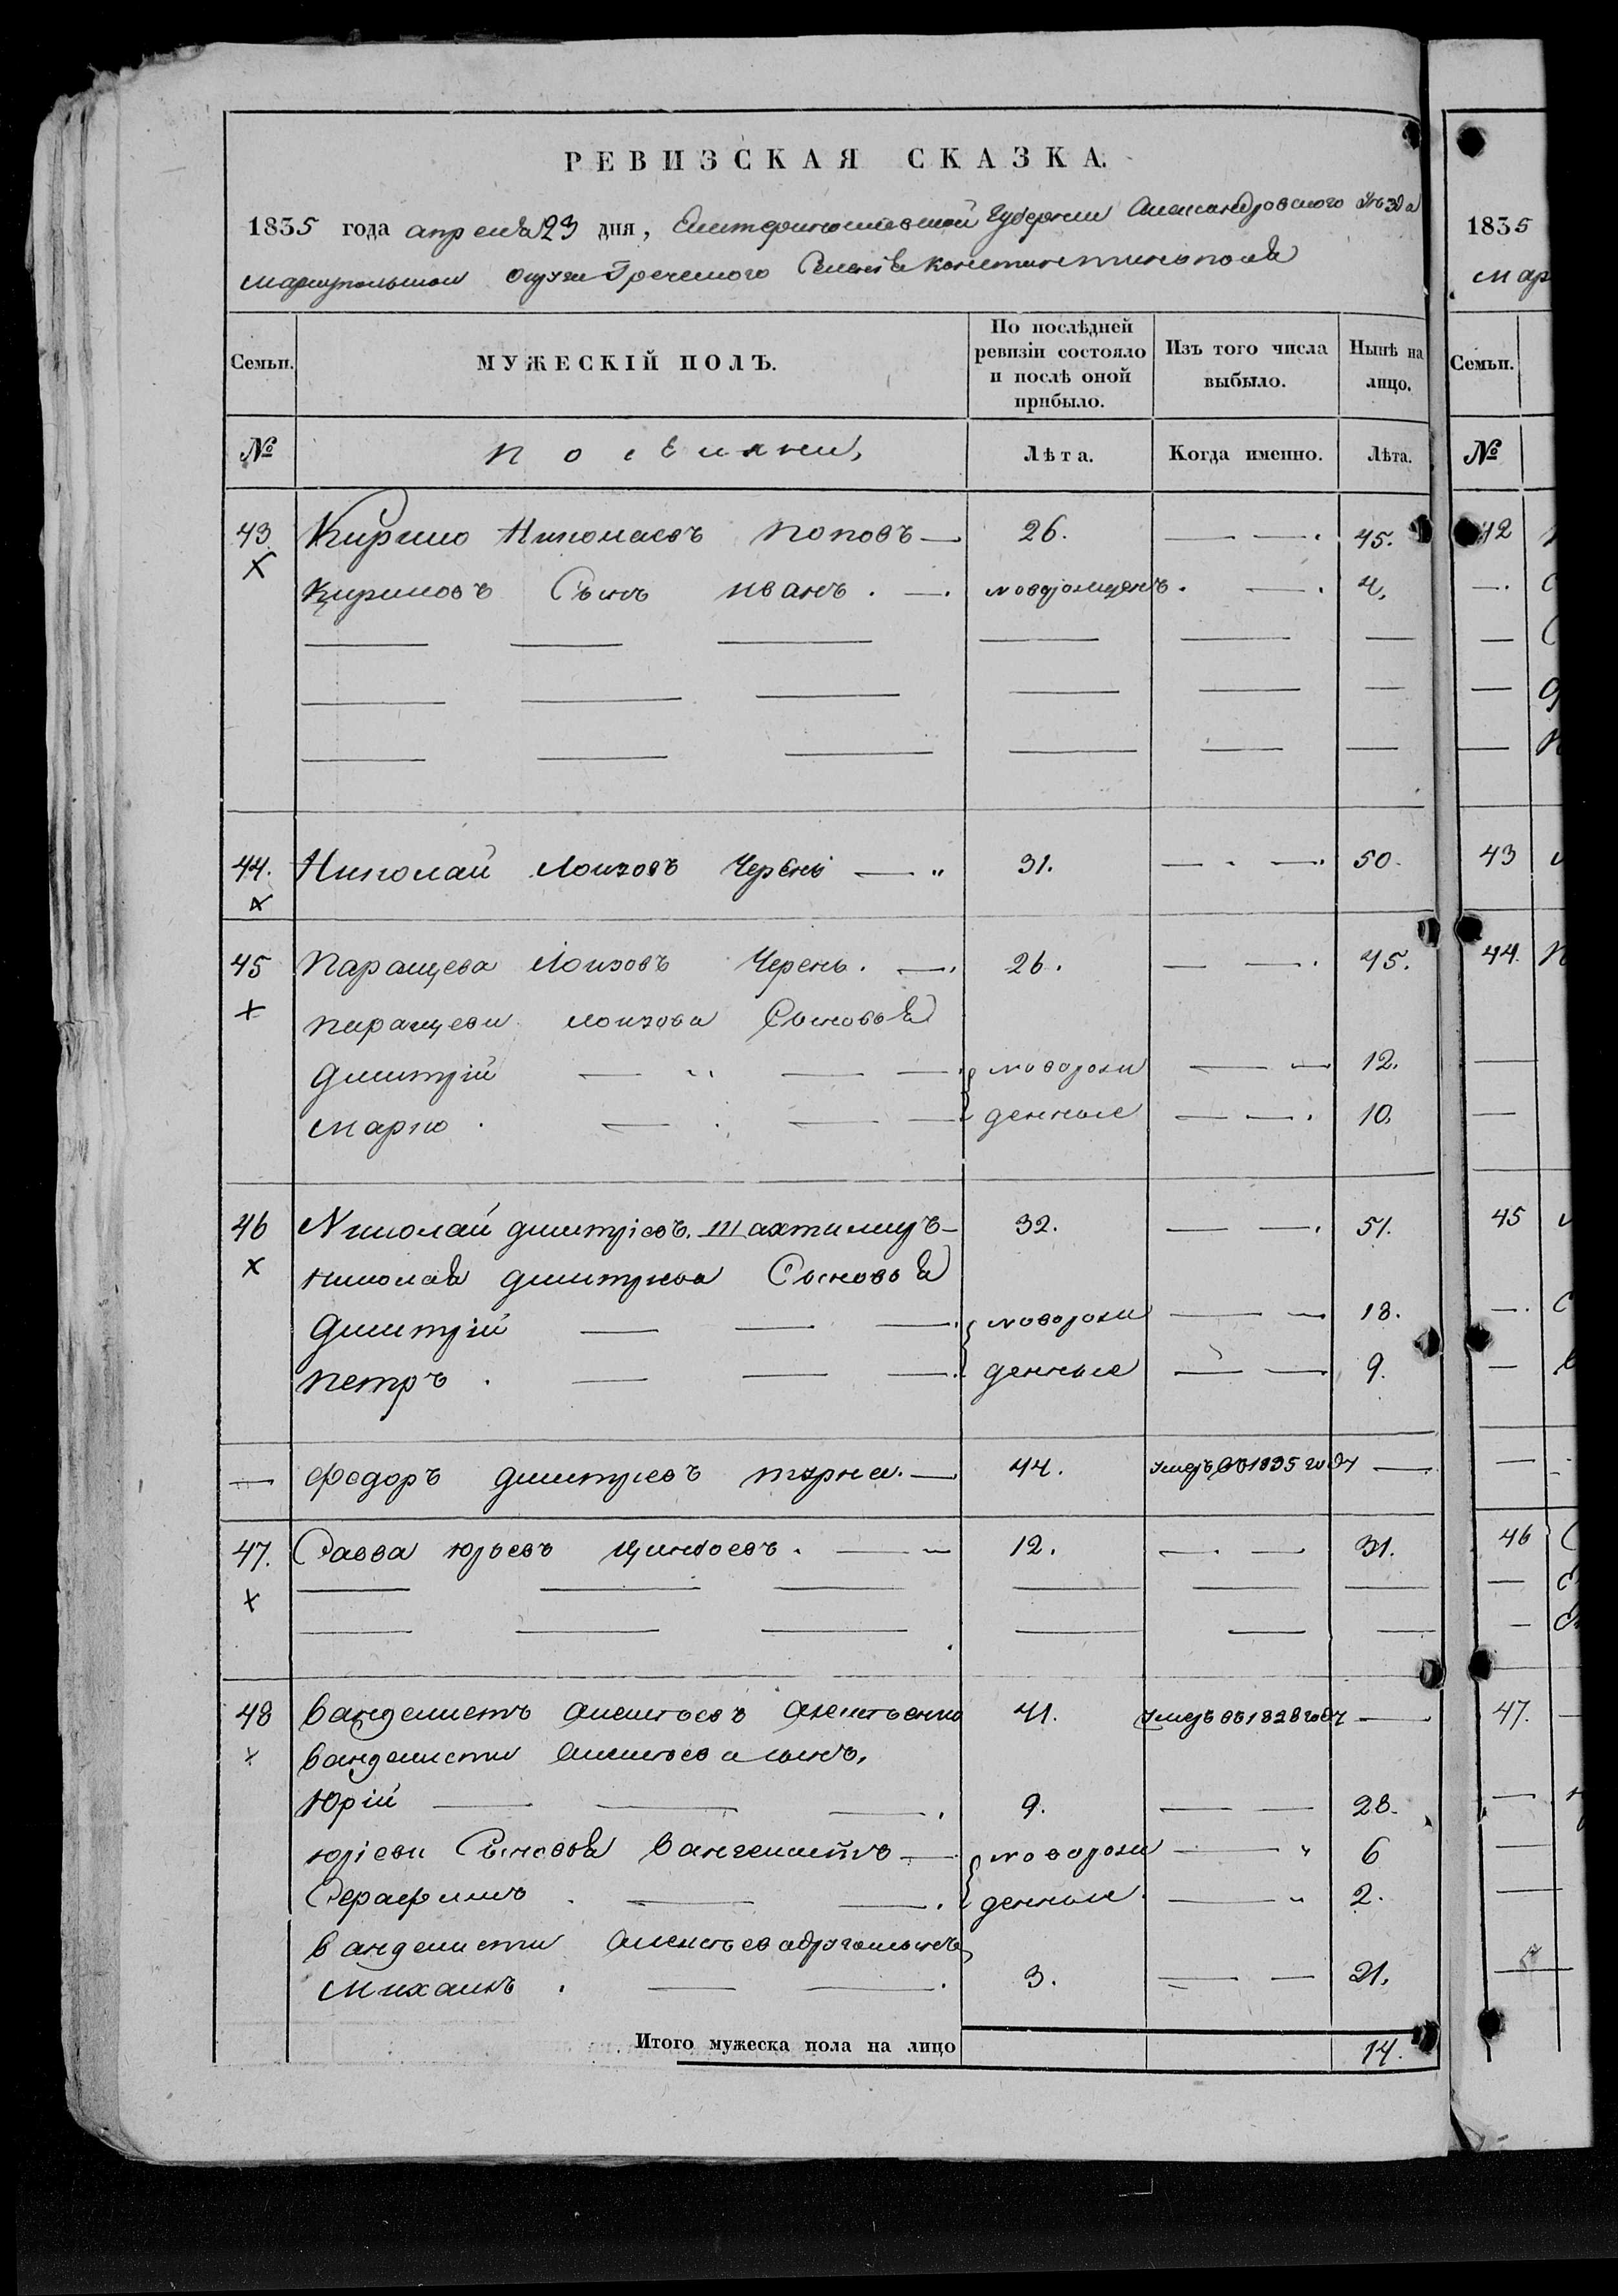 РЕВИЗСКАЯ СКАЗКА.
1835 года апреля 23 дня, Екатеринославской Губернии Александровского Уезда
мариупольскои округи Греческого Селенія константинополя
Семьи. МУЖЕСКІЙ ПОЛЪ. По послѣдней ревизіи состояло и послѣ оной прибыло. Изъ того числа выбыло. Нынѣ на лицо.
№ поселяни, Лѣта. Когда именно. Лѣта.
43 Кирило Николаевъ поповъ — 26. — — . 45.
Кириловъ Сынъ иванъ . — . новорожденъ . — . 4.
44. Николай Лоизовъ Черень — „ 31. — - — . 50.
45 Паращева Лоизовъ Черень . — . 26. — — . 45.
паращевы лоизова Сыновья
Дмитрій — — — новорож — — 12.
марко . — . — — денные — — . 10.
46 Николай дмитріевъ шахтималъ — 32. — — . 51.
николая дмитриева Сыновья
Дмитрій — — — . новорож — — 18.
петръ . — — — . денные — — 9.
— Федоръ дмитриевъ — 44. умеръ въ 1835 году — .
47. Савва юрьевъ — — 12. — — 31.
48 вангелистъ Алексеевъ 41. умеръ въ 1828 году — .
вангелиста Алексеева сынъ,
Юрій — — — . 9. — — 28.
юріевы Сыновья вангелистъ — новорож — „ 6
Серафимъ . — — . денные — „ 2.
вангелиста Алексеева другой сынъ
михаилъ . — — . 3. — — 21.
Итого мужеска пола на лицо 14.
1835
мар
Семьи.
№
12
43
44.
45
46
47.